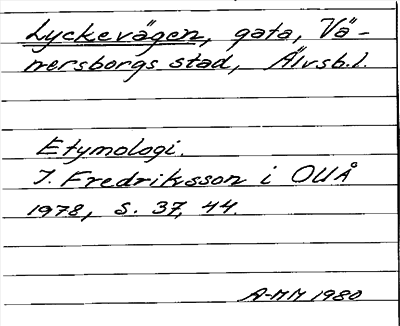 Lyckevägen, gata, Vä-
nersborgs stad, Älvsb.l.
Etymologi.
I. Fredriksson i OUÅ
1978, s. 37, 44.
A-MM 1980